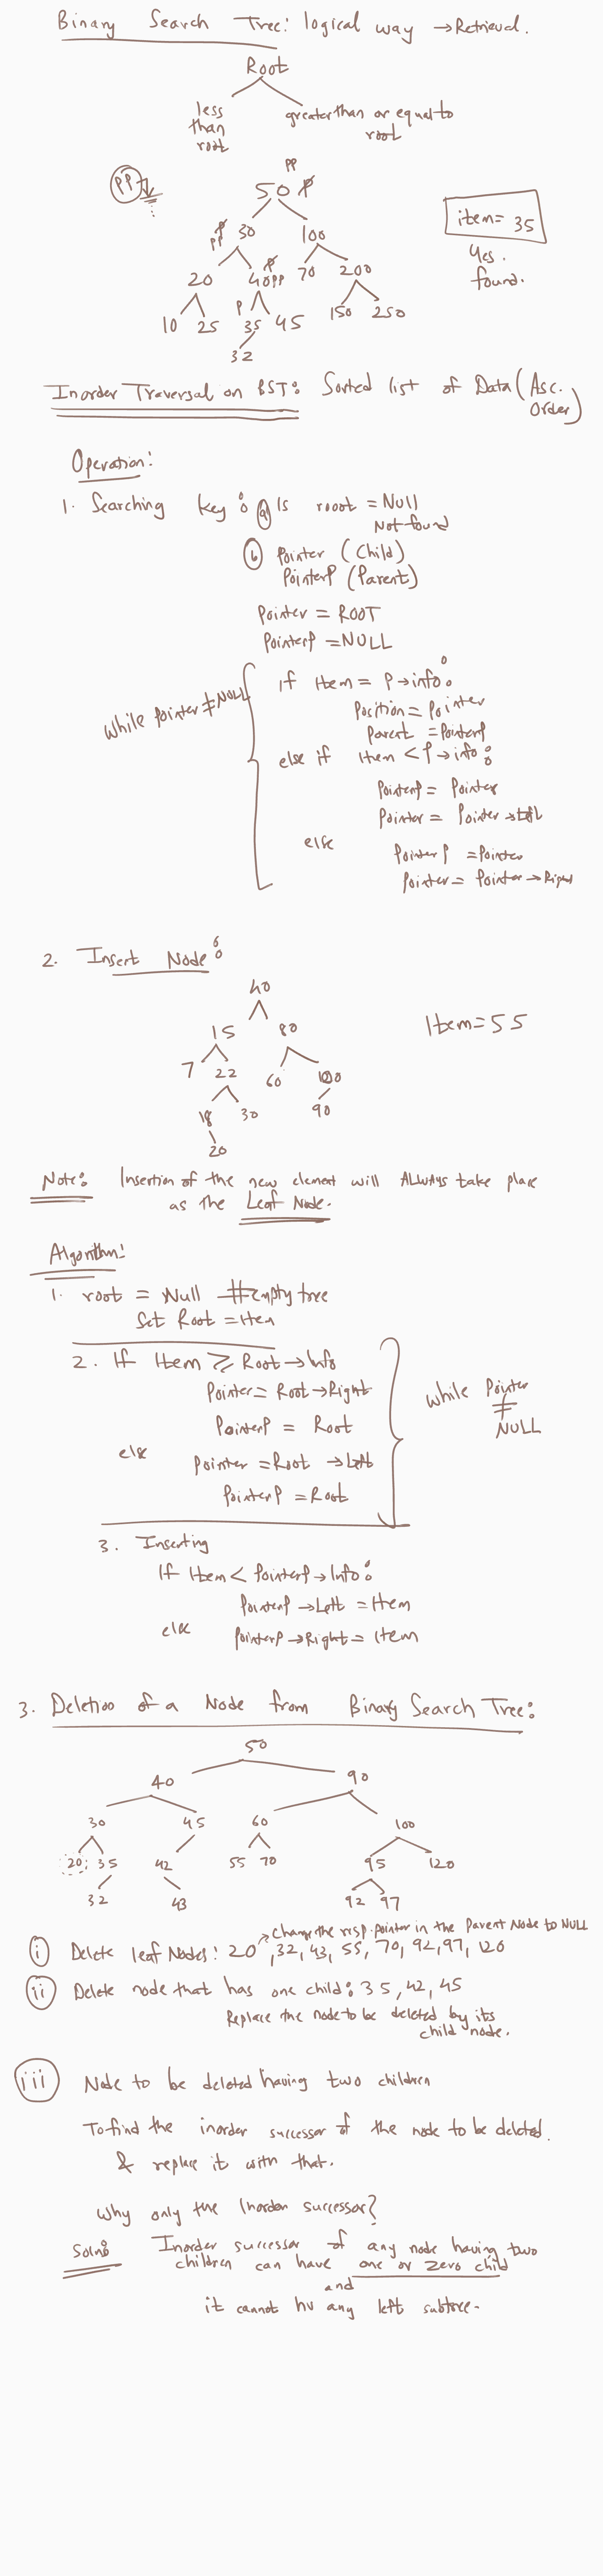 Binary Search Tree: logical way → Retrieval.
Root
less than root
greater than or equal to root
PP
PP
50 P
P 30 100
PP
20 P 40 PP 70 200
10 25 P 35 45 150 250
32
item = 35
Yes.
found.
Inorder Traversal on BST: Sorted list of Data (Asc. Order)
Operation:
1. Searching key: (a) Is rooot = Null
Not found
(b) Pointer (Child)
PointerP (Parent)
Pointer = ROOT
PointerP = NULL
while pointer ≠ NULL
if Item = P → info:
Position = Pointer
Parent = PointerP
else if Item < P → info:
PointerP = Pointer
Pointer = Pointer → Left
else
PointerP = Pointer
Pointer = Pointer → Right
2. Insert Node:
40
15 80
7 22 60 100
18 30 90
20
Item = 55
Note: Insertion of the new element will ALWAYS take place
as the Leaf Node.
Algorithm:
1. root = Null # empty tree
Set Root = Item
2. If Item ≥ Root → Info
Pointer = Root → Right
PointerP = Root
else Pointer = Root → Left
PointerP = Root
while Pointer ≠ NULL
3. Inserting
If Item < PointerP → Info:
PointerP → Left = Item
else PointerP → Right = Item
3. Deletion of a Node from Binary Search Tree:
50
40 90
30 45 60 100
20 35 42 55 70 95 120
32 43 92 97
→ Change the resp. pointer in the Parent Node to NULL
(i) Delete leaf Nodes: 20, 32, 43, 55, 70, 92, 97, 120
(ii) Delete node that has one child: 35, 42, 45
Replace the node to be deleted by its
child node.
(iii) Node to be deleted having two children
To find the inorder successor of the node to be deleted.
& replace it with that.
Why only the Inorder successor?
Soln: Inorder successor of any node having two
children can have one or zero child
and
it cannot hv any left subtree.